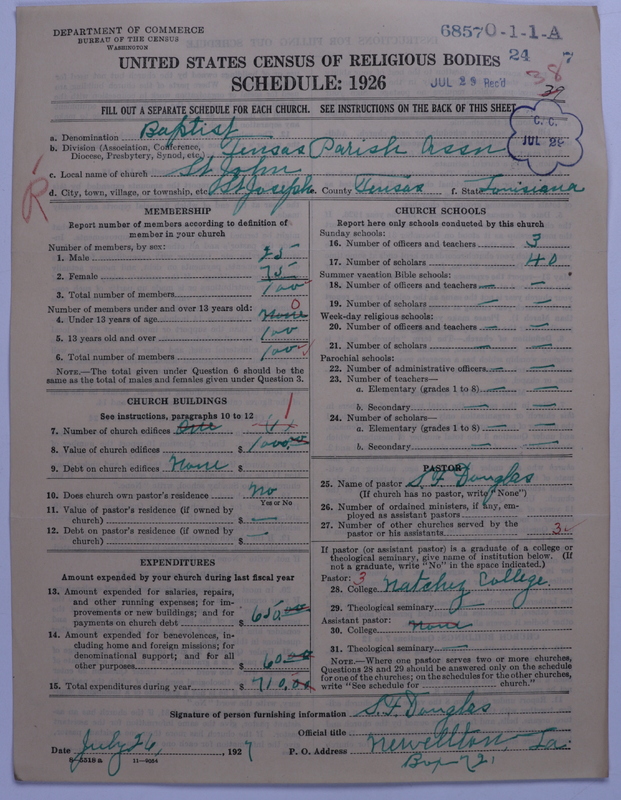 DEPARTMENT OF COMMERCE
BUREAU OF THE CENSUS
WASHINGTON
68570-1-1-A
UNITED STATES CENSUS OF RELIGIOUS BODIES
24
7
SCHEDULE: 1926
JUL 29 Rec'd
38
29
FILL OUT A SEPARATE SCHEDULE FOR EACH CHURCH. SEE INSTRUCTIONS ON THE BACK OF THIS SHEET
C. C.
JUL 29
R
a. Denomination Baptist
b. Division (Association, Conference, Diocese, Presbytery, Synod, etc.) Tensas Parish Assn
c. Local name of church St John
d. City, town, village, or township, etc St Joseph e. County Tensas f. State Louisiana
MEMBERSHIP
Report number of members according to definition of
member in your church
Number of members, by sex:
1. Male 25
2. Female 75
3. Total number of members 100
Number of members under and over 13 years old: 0
4. Under 13 years of age None
5. 13 years old and over 100
6. Total number of members 100
NOTE.—The total given under Question 6 should be the
same as the total of males and females given under Question 3.
CHURCH BUILDINGS
See instructions, paragraphs 10 to 12
7. Number of church edifices One 1
8. Value of church edifices $ 1000.00
9. Debt on church edifices None $
10. Does church own pastor's residence No
Yes or No
11. Value of pastor's residence (if owned by
church) $ —
12. Debt on pastor's residence (if owned by
church) $ —
EXPENDITURES
Amount expended by your church during last fiscal year
13. Amount expended for salaries, repairs,
and other running expenses; for im-
provements or new buildings; and for
payments on church debt $ 650.00
14. Amount expended for benevolences, in-
cluding home and foreign missions; for
denominational support; and for all
other purposes $ 60.00
15. Total expenditures during year $ 710.00
CHURCH SCHOOLS
Report here only schools conducted by this church
Sunday schools:
16. Number of officers and teachers 3
17. Number of scholars 40
Summer vacation Bible schools:
18. Number of officers and teachers —
19. Number of scholars —
Week-day religious schools:
20. Number of officers and teachers —
21. Number of scholars —
Parochial schools:
22. Number of administrative officers —
23. Number of teachers—
a. Elementary (grades 1 to 8) —
b. Secondary —
24. Number of scholars—
a. Elementary (grades 1 to 8) —
b. Secondary —
PASTOR
25. Name of pastor S. F. Douglas
(If church has no pastor, write "None")
26. Number of ordained ministers, if any, em-
ployed as assistant pastors
27. Number of other churches served by the
pastor or his assistants 3
If pastor (or assistant pastor) is a graduate of a college or
theological seminary, give name of institution below. (If
not a graduate, write "No" in the space indicated.)
Pastor: 3
28. College Natchez College.
29. Theological seminary
Assistant pastor:
30. College None
31. Theological seminary —
NOTE.—Where one pastor serves two or more churches,
Questions 28 and 29 should be answered only on the schedule
for one of the churches; on the schedules for the other churches,
write "See schedule for church."
Signature of person furnishing information S. F. Douglas
Official title
Date July 26, 1927 P. O. Address Newellton, La.
8—5518 a 11—9664
Box 72